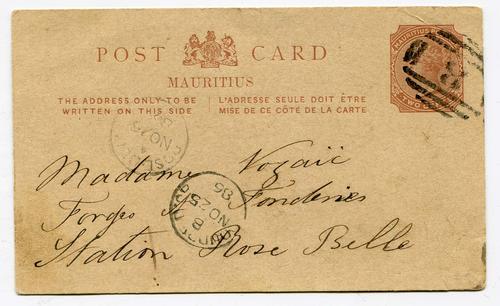 POST CARD
MAURITIUS
THE ADDRESS ONLY TO BE WRITTEN ON THIS SIDE
L'ADRESSE SEULE DOIT ÊTRE MISE DE CE CÔTÉ DE LA CARTE
MAURITIUS
TWO
Madame
Forges & Fonderies
Station Rose Belle
B
NO 25
95
NO 25